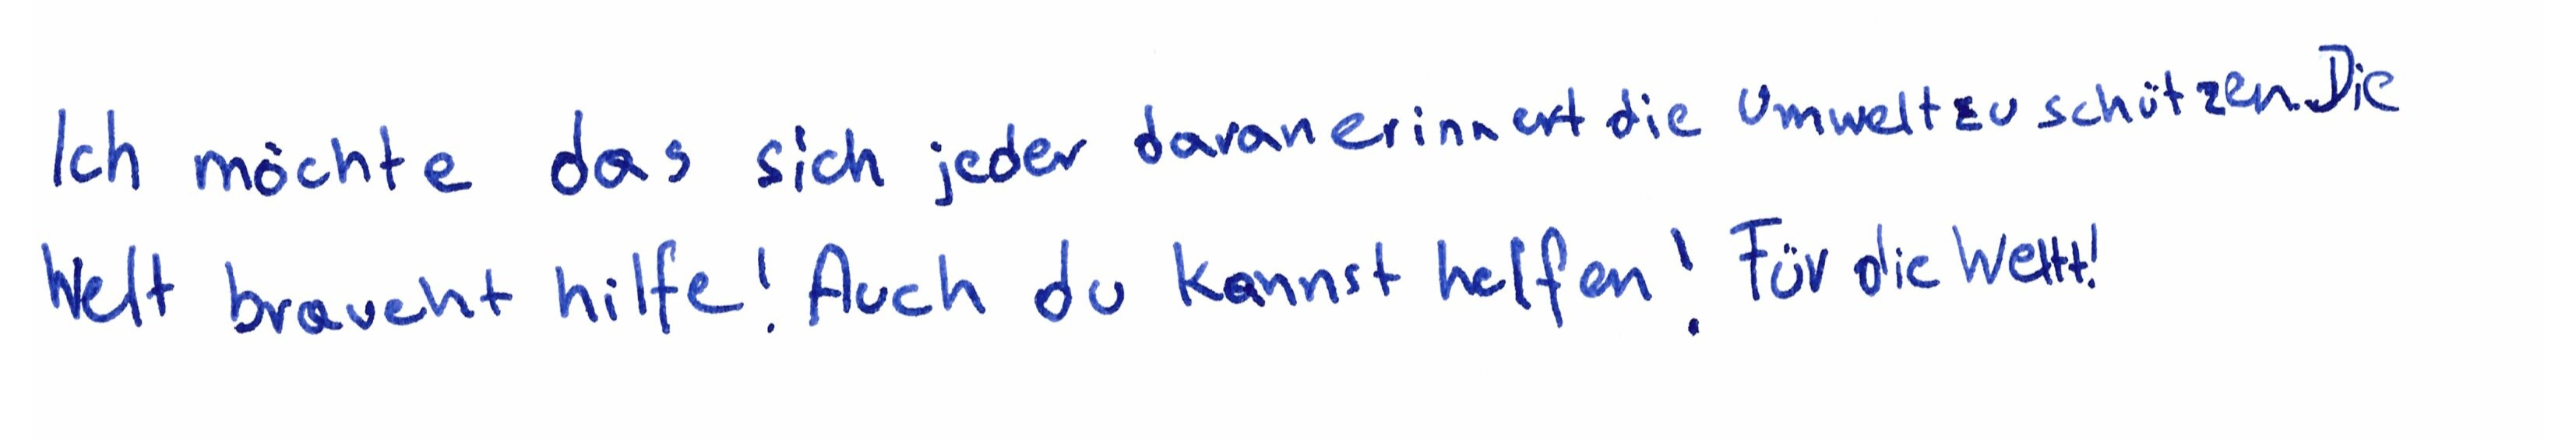 Ich möchte das sich jeder daran erinnert die Umwelt zu schützen. Die
Welt braucht hilfe! Auch du kannst helfen! Für die Weltt!